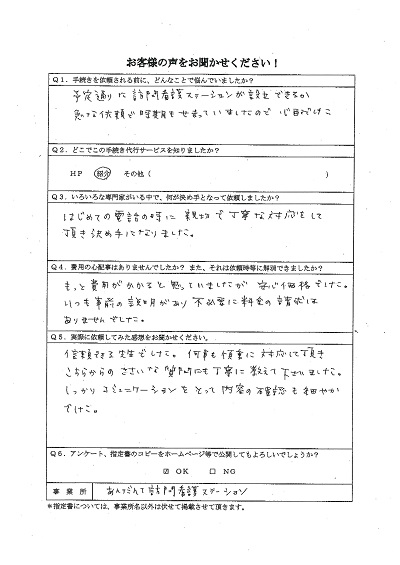 お客様の声をお聞かせください！
Ｑ１．手続きを依頼される前に、どんなことで悩んでいましたか？
予定通りに訪問看護ステーションが設立できるか
急な依頼で時期もせまっていましたので心配でした
Ｑ２．どこでこの手続き代行サービスを知りましたか？
ＨＰ 紹介 その他（ ）
Ｑ３．いろいろな専門家がいる中で、何が決め手となって依頼しましたか？
はじめての電話の時に親切で丁寧な対応をして
頂き決め手になりました。
Ｑ４．費用の心配事はありませんでしたか？また、それは依頼時等に解消できましたか？
もっと費用がかかると思っていましたが安心価格でした。
いつも事前の説明があり不必要に料金の請求は
ありませんでした。
Ｑ５．実際に依頼してみた感想をお聞かせください。
信頼できる先生でした。何事も慎重に対応して頂き
こちらからのささいな質問にも丁寧に教えて下さいました。
しっかりコミュニケーションをとって内容の確認も細やか
でした。
Ｑ６．アンケート、指定書のコピーをホームページ等で公開してもよろしいでしょうか？
☑ ＯＫ □ ＮＧ
事業所 あんだんて訪問看護ステーション
＊指定書については、事業所名以外は伏せて掲載させて頂きます。